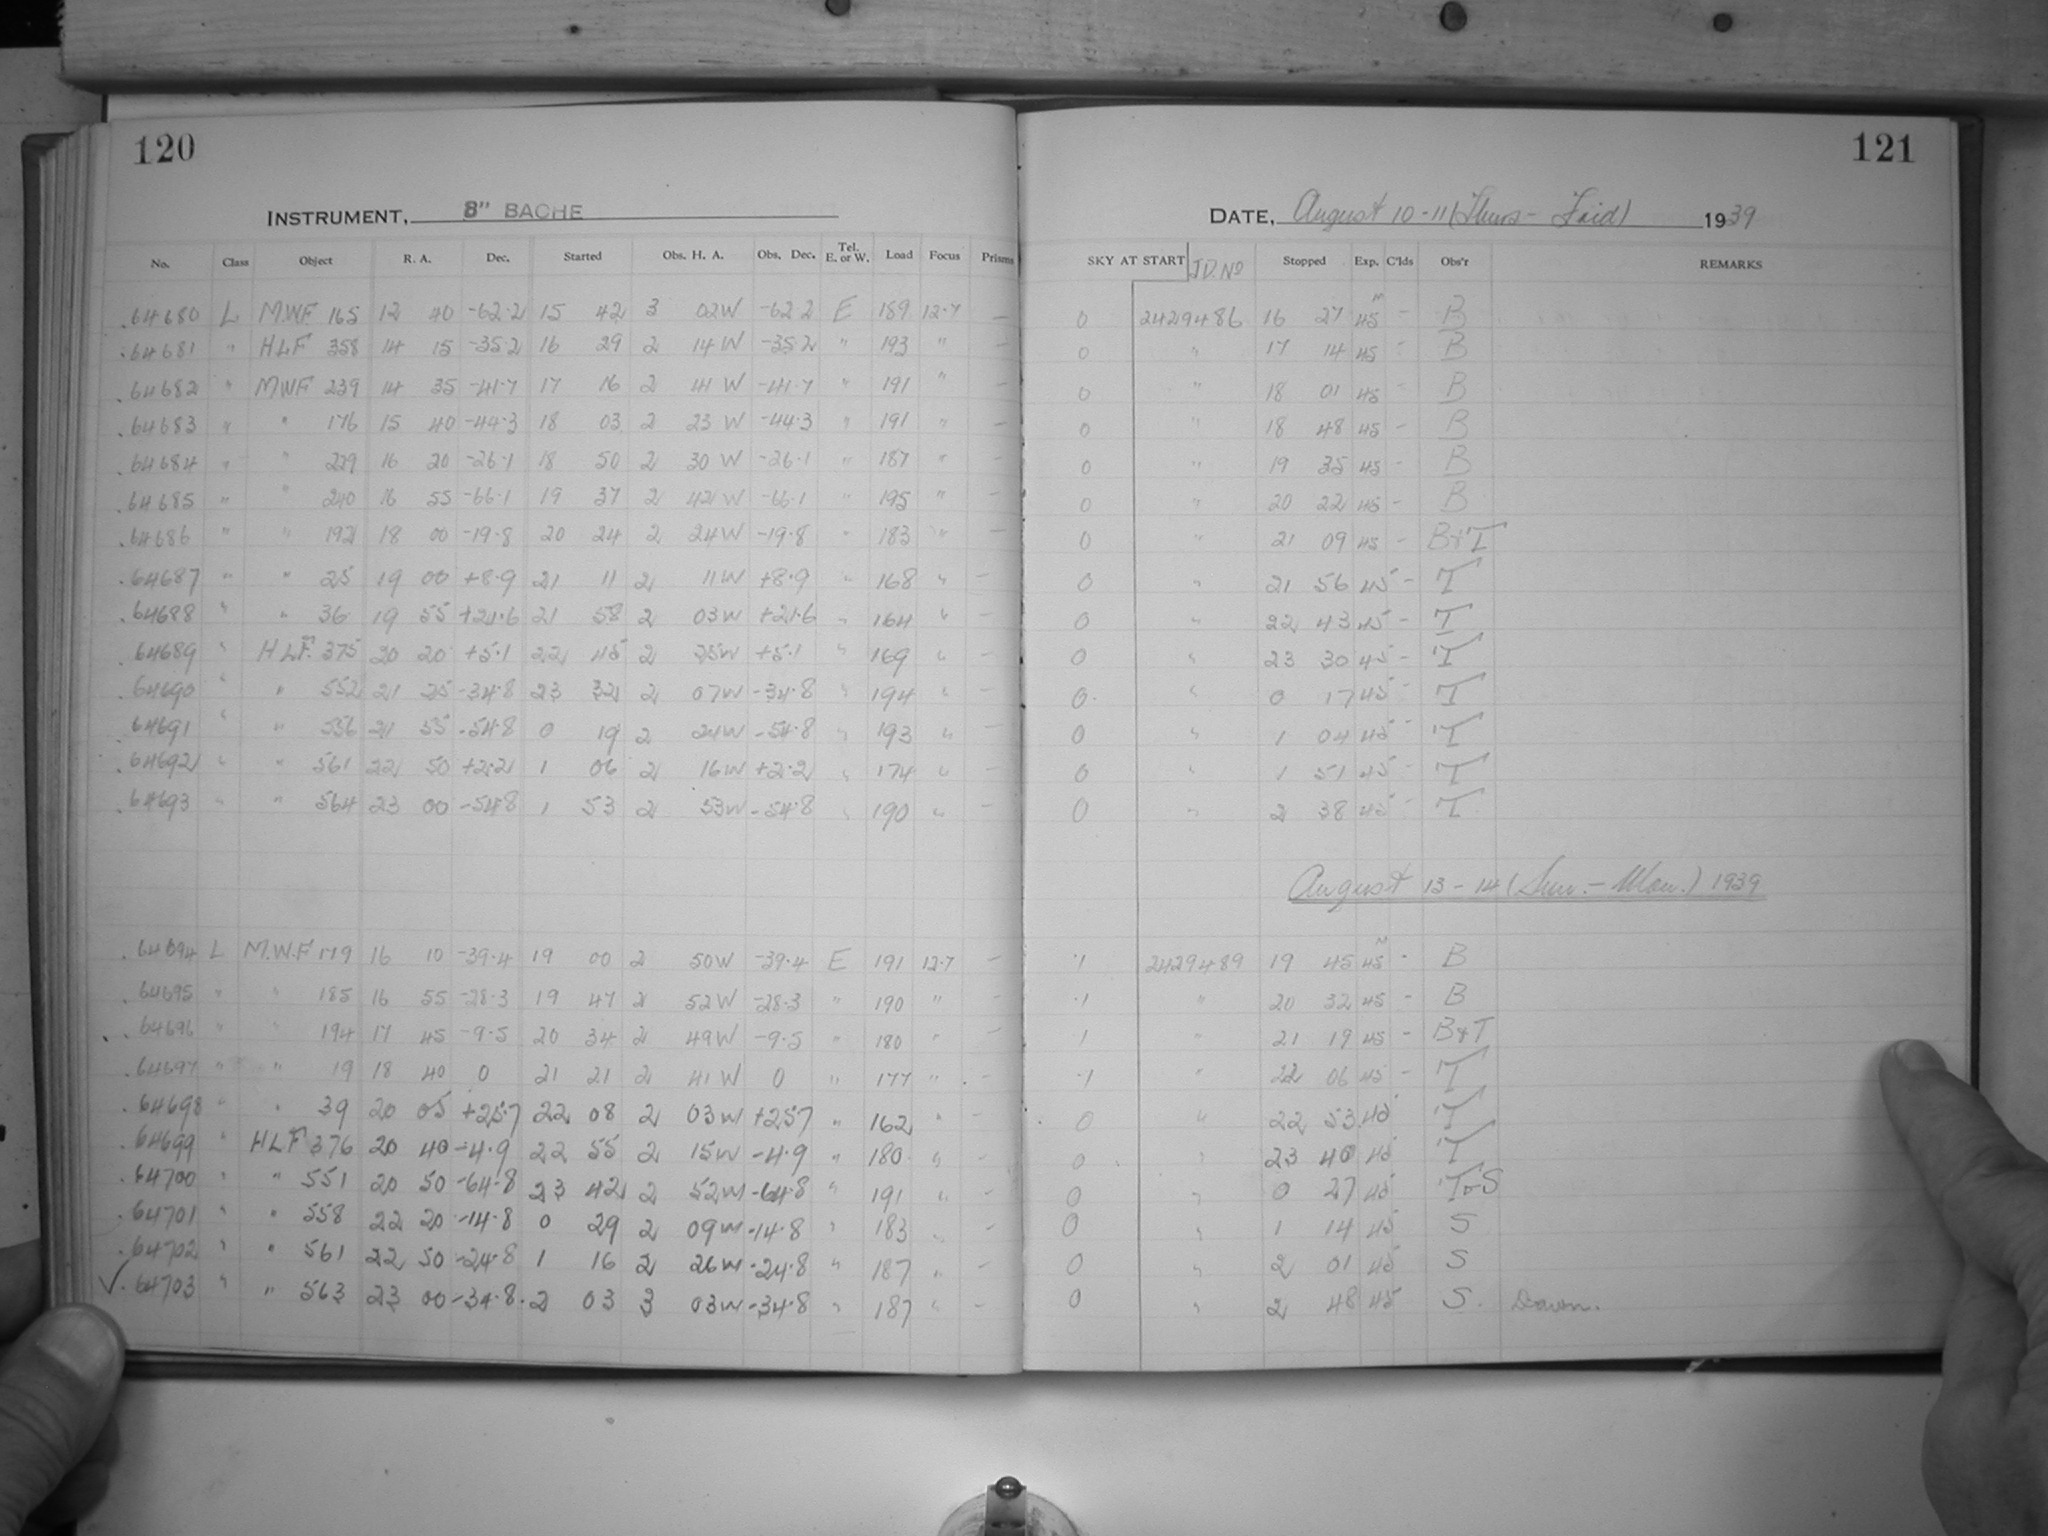 120
INSTRUMENT, 8" BACHE
No. Class Object R. A. Dec. Started Obs. H. A. Obs. Dec. Tel. E. or W. Load Focus Prisms
.64680 L M.W.F 165 12 40 -62.2 15 42 3 02W -62.2 E 189 12.7 —
.64681 " HLF 358 14 15 -35.2 16 29 2 14W -35.2 " 193 " —
.64682 " MWF 239 14 35 -41.7 17 16 2 41W -41.7 " 191 " —
.64683 " " 176 15 40 -44.3 18 03 2 23W -44.3 " 191 " —
.64684 " " 229 16 20 -26.1 18 50 2 30W -26.1 " 187 " —
.64685 " " 240 16 55 -66.1 19 37 2 42W -66.1 " 195 " —
.64686 " " 192 18 00 -19.8 20 24 2 24W -19.8 " 183 " —
.64687 " " 25 19 00 +8.9 21 11 2 11W +8.9 " 168 " —
.64688 " " 36 19 55 +21.6 21 58 2 03W +21.6 " 164 " —
.64689 " HLF. 375 20 20 +5.1 22 45 2 25W +5.1 " 169 " —
.64690 " " 552 21 25 -34.8 23 32 2 07W -34.8 " 194 " —
.64691 " " 556 21 55 -54.8 0 19 2 24W -54.8 " 193 " —
.64692 " " 561 22 50 +2.2 1 06 2 16W +2.2 " 174 " —
.64693 " " 564 23 00 -54.8 1 53 2 53W -54.8 " 190 " —
.64694 L M.W.F 179 16 10 -39.4 19 00 2 50W -39.4 E 191 12.7 —
.64695 " " 185 16 55 -28.3 19 47 2 52W -28.3 " 190 " —
.64696 " " 194 17 45 -9.5 20 34 2 49W -9.5 " 180 " —
.64697 " " 19 18 40 0 21 21 2 41W 0 " 177 " —
.64698 " " 39 20 05 +25.7 22 08 2 03W +25.7 " 162 " —
.64699 " HLF 376 20 40 -4.9 22 55 2 15W -4.9 " 180 " —
.64700 " " 551 20 50 -64.8 23 42 2 52W -64.8 " 191 " —
.64701 " " 558 22 20 -14.8 0 29 2 09W -14.8 " 183 " —
.64702 " " 561 22 50 -24.8 1 16 2 26W -24.8 " 187 " —
✓.64703 " " 563 23 00 -34.8 2 03 3 03W -34.8 " 187 " —
121
DATE, August 10-11 (Thurs- Frid) 1939
SKY AT START J.D. No Stopped Exp. C'lds Obs'r REMARKS
0 2429486 16 27 45m - B
0 " 17 14 45 - B
0 " 18 01 45 - B
0 " 18 48 45 - B
0 " 19 35 45 - B
0 " 20 22 45 - B
0 " 21 09 45 - B+T
0 " 21 56 45 - T
0 " 22 43 45 - T
0 " 23 30 45 - T
0 " 0 17 45 - T
0 " 1 04 45 - T
0 " 1 51 45 - T
0 " 2 38 45 - T
August 13-14 (Sun.- Mon.) 1939
.1 2429489 19 45 45m - B
.1 " 20 32 45 - B
1 " 21 19 45 - B+T
.1 " 22 06 45 - T
0 " 22 53 45 T
0 " 23 40 45 T
0 " 0 27 45 T+S
0 " 1 14 45 S
0 " 2 01 45 S
0 " 2 48 45 S. Dawn.